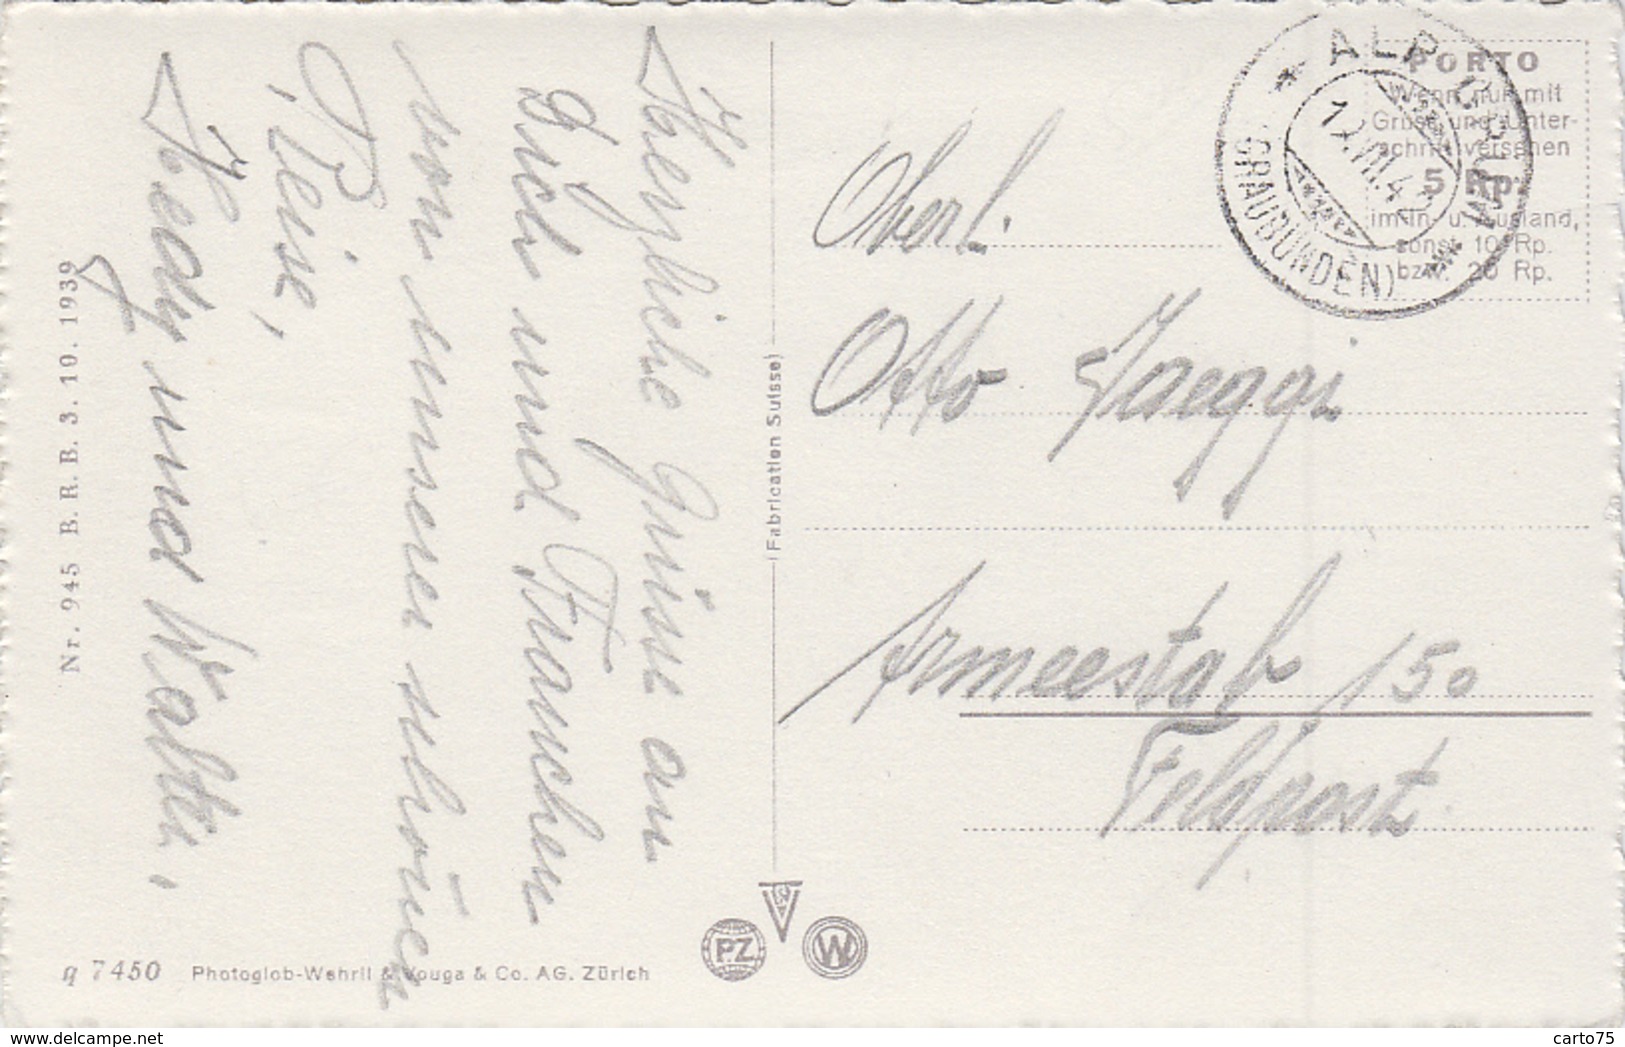 Herzliche Grüsse an
Dich und Frauchen
von unserer schönen
Reise,
Heady und Walti,
Nr. 945 B. R. B. 3. 10. 1939
q 7450 Photoglob-Wehrli & Vouga & Co. AG. Zürich
(Fabrication Suisse)
PZ
W
ALP GRÜM
(GRAUBÜNDEN)
PORTO
Wenn nur mit
Gruss und Unter-
schrift versehen
5 Rp.
im In- u. Ausland,
sonst 10 Rp.
bzw. 20 Rp.
Oberl.
Otto Jaeggi
Armeestab 150
Feldpost.
carto75